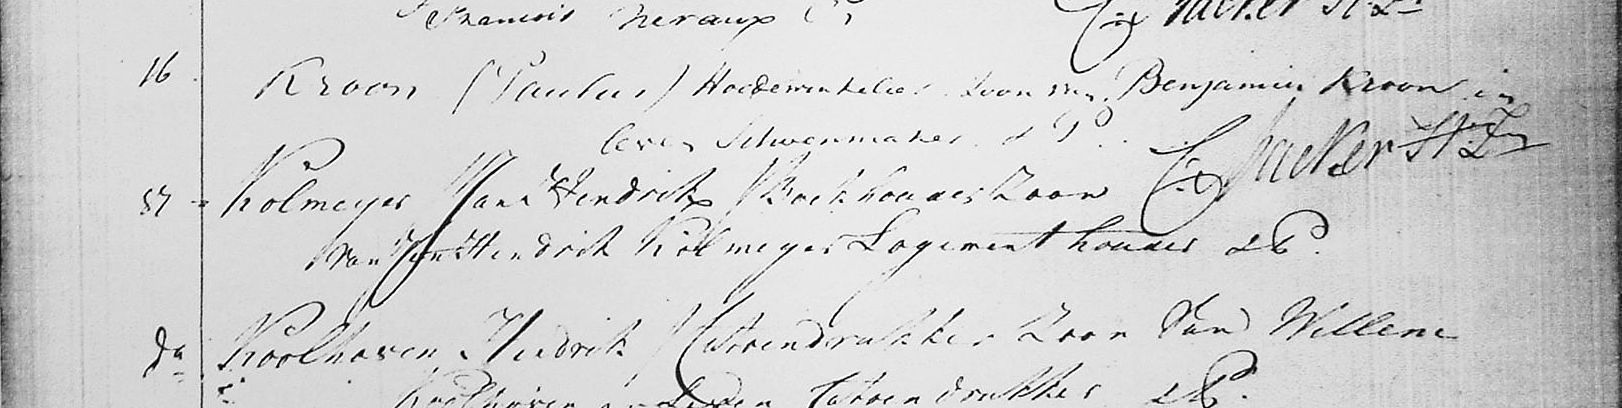 Francois
16 Kroon (Paulus) Hoedewinkelier Zoon van Benjamin Kroon in
leven Schoenmaker
57 Kolmeyer Jan Hendrik Boekhouder Zoon
van Jan Hendrik Kolmeyer Logementhouder
do Koolhoven Hendrik Catoendrukker Zoon van Willem
Koolhoven in Leven Catoendrukker